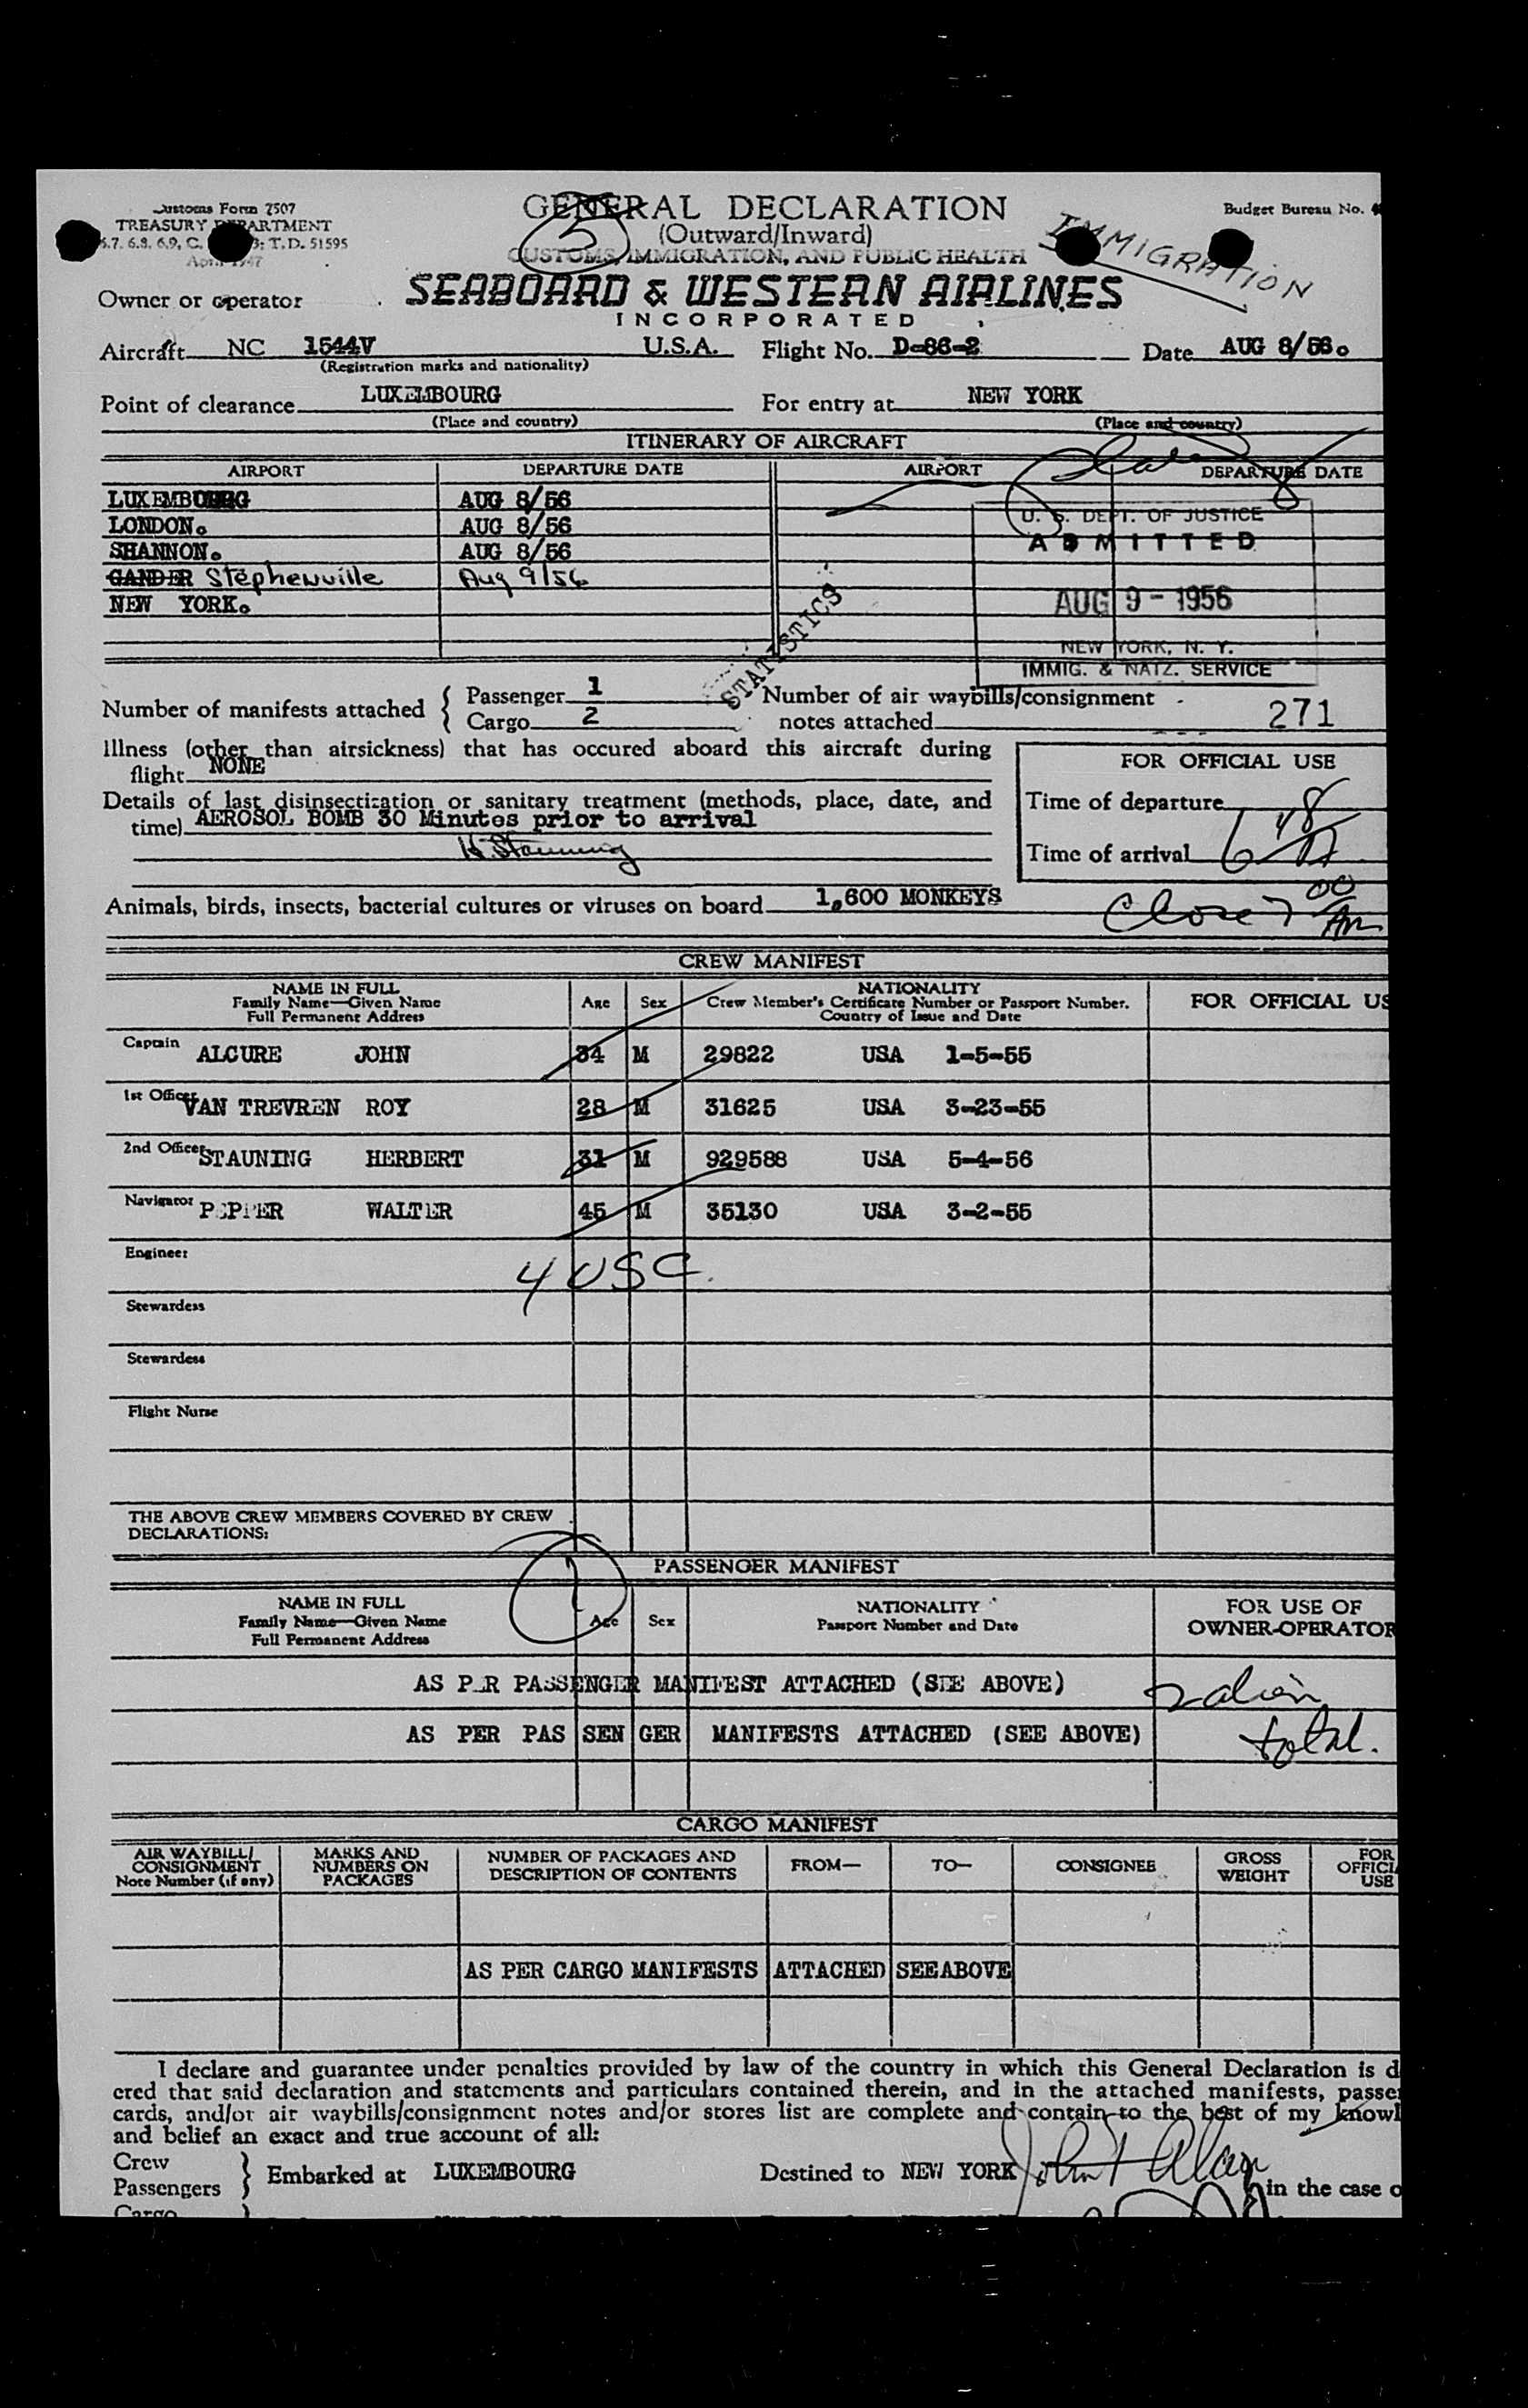 Customs Form 7507
TREASURY DEPARTMENT
6.7, 6.8, 6.9, C. 3; T.D. 51595
April 1947
GENERAL DECLARATION
(Outward/Inward)
CUSTOMS, IMMIGRATION, AND PUBLIC HEALTH
5
IMMIGRATION
Budget Bureau No.
Owner or operator SEABOARD & WESTERN AIRLINES
INCORPORATED
Aircraft NC 1544V U.S.A. Flight No. D-86-2 Date AUG 8/56.
(Registration marks and nationality)
Point of clearance LUXEMBOURG For entry at NEW YORK
(Place and country) (Place and country)
ITINERARY OF AIRCRAFT
AIRPORT DEPARTURE DATE AIRPORT DEPARTURE DATE
LUXEMBOURG AUG 8/56
LONDON. AUG 8/56
SHANNON. AUG 8/56
GANDER Stephenville Aug 9/56
NEW YORK.
U. S. DEPT. OF JUSTICE
ADMITTED
AUG 9 - 1956
NEW YORK, N. Y.
IMMIG. & NATZ. SERVICE
STATISTICS
Number of manifests attached { Passenger 1
Cargo 2
Number of air waybills/consignment
notes attached 271
Illness (other than airsickness) that has occured aboard this aircraft during
flight NONE
Details of last disinsectization or sanitary treatment (methods, place, date, and
time) AEROSOL BOMB 30 Minutes prior to arrival
H. Stauning
FOR OFFICIAL USE
Time of departure
Time of arrival 6 48
Animals, birds, insects, bacterial cultures or viruses on board 1,600 MONKEYS
Close 7 00 AM
CREW MANIFEST
NAME IN FULL
Family Name—Given Name
Full Permanent Address
Age Sex
NATIONALITY
Crew Member's Certificate Number or Passport Number.
Country of Issue and Date
FOR OFFICIAL US
Captain ALCURE JOHN 34 M 29822 USA 1-5-55
1st Officer VAN TREVREN ROY 28 M 31625 USA 3-23-55
2nd Officer STAUNING HERBERT 31 M 929588 USA 5-4-56
Navigator PEPPER WALTER 45 M 35130 USA 3-2-55
Engineer
4 USC.
Stewardess
Stewardess
Flight Nurse
THE ABOVE CREW MEMBERS COVERED BY CREW
DECLARATIONS:
PASSENGER MANIFEST
NAME IN FULL
Family Name—Given Name
Full Permanent Address
Age Sex
NATIONALITY
Passport Number and Date
FOR USE OF
OWNER-OPERATOR
AS PER PASSENGER MANIFEST ATTACHED (SEE ABOVE)
AS PER PAS SEN GER MANIFESTS ATTACHED (SEE ABOVE)
total.
CARGO MANIFEST
AIR WAYBILL/
CONSIGNMENT
Note Number (if any)
MARKS AND
NUMBERS ON
PACKAGES
NUMBER OF PACKAGES AND
DESCRIPTION OF CONTENTS
FROM— TO— CONSIGNEE
GROSS
WEIGHT
FOR
OFFICIA
USE
AS PER CARGO MANIFESTS ATTACHED SEE ABOVE
I declare and guarantee under penalties provided by law of the country in which this General Declaration is d
ered that said declaration and statements and particulars contained therein, and in the attached manifests, passe
cards, and/or air waybills/consignment notes and/or stores list are complete and contain to the best of my knowl
and belief an exact and true account of all:
Crew
Passengers } Embarked at LUXEMBOURG Destined to NEW YORK in the case o
Cargo